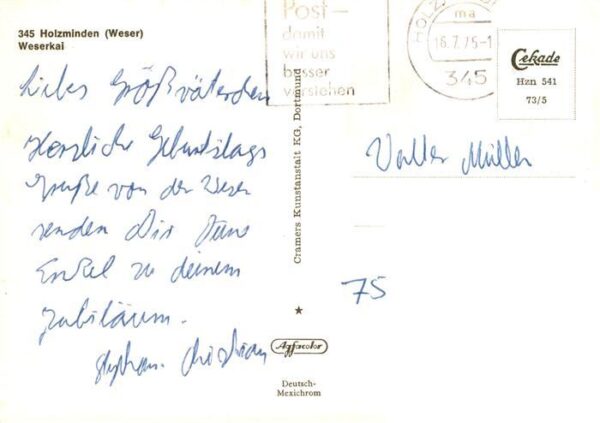 345 Holzminden (Weser)
Weserkai
Liebes Größväterchen
Herzliche Geburtstags
Grüße von der Weser
senden Dir Deine
Enkel zu deinem
Jubiläum.
Stephan. Christian
Cramers Kunstanstalt KG, Dortmund
Agfacolor
Deutsch-
Mexichrom
Post-
damit
wir uns
besser
verstehen
HOLZ
ma
16.7.75-1
345
Cekade
Hzn 541
73/5
Walter Müller
75